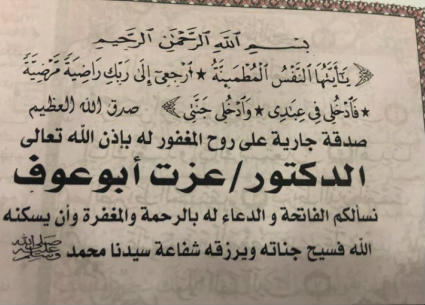 بِسْمِ اللَّهِ الرَّحْمَٰنِ الرَّحِيمِ
﴿ يَا أَيَّتُهَا النَّفْسُ الْمُطْمَئِنَّةُ ★ ارْجِعِي إِلَىٰ رَبِّكِ رَاضِيَةً مَّرْضِيَّةً
★ فَادْخُلِي فِي عِبَادِي ★ وَادْخُلِي جَنَّتِي ﴾ صدق الله العظيم
صدقة جارية على روح المغفور له بإذن الله تعالى
الدكتور/عزت أبوعوف
نسألكم الفاتحة و الدعاء له بالرحمة والمغفرة وأن يسكنه
الله فسيح جناته ويرزقه شفاعة سيدنا محمد ﷺ